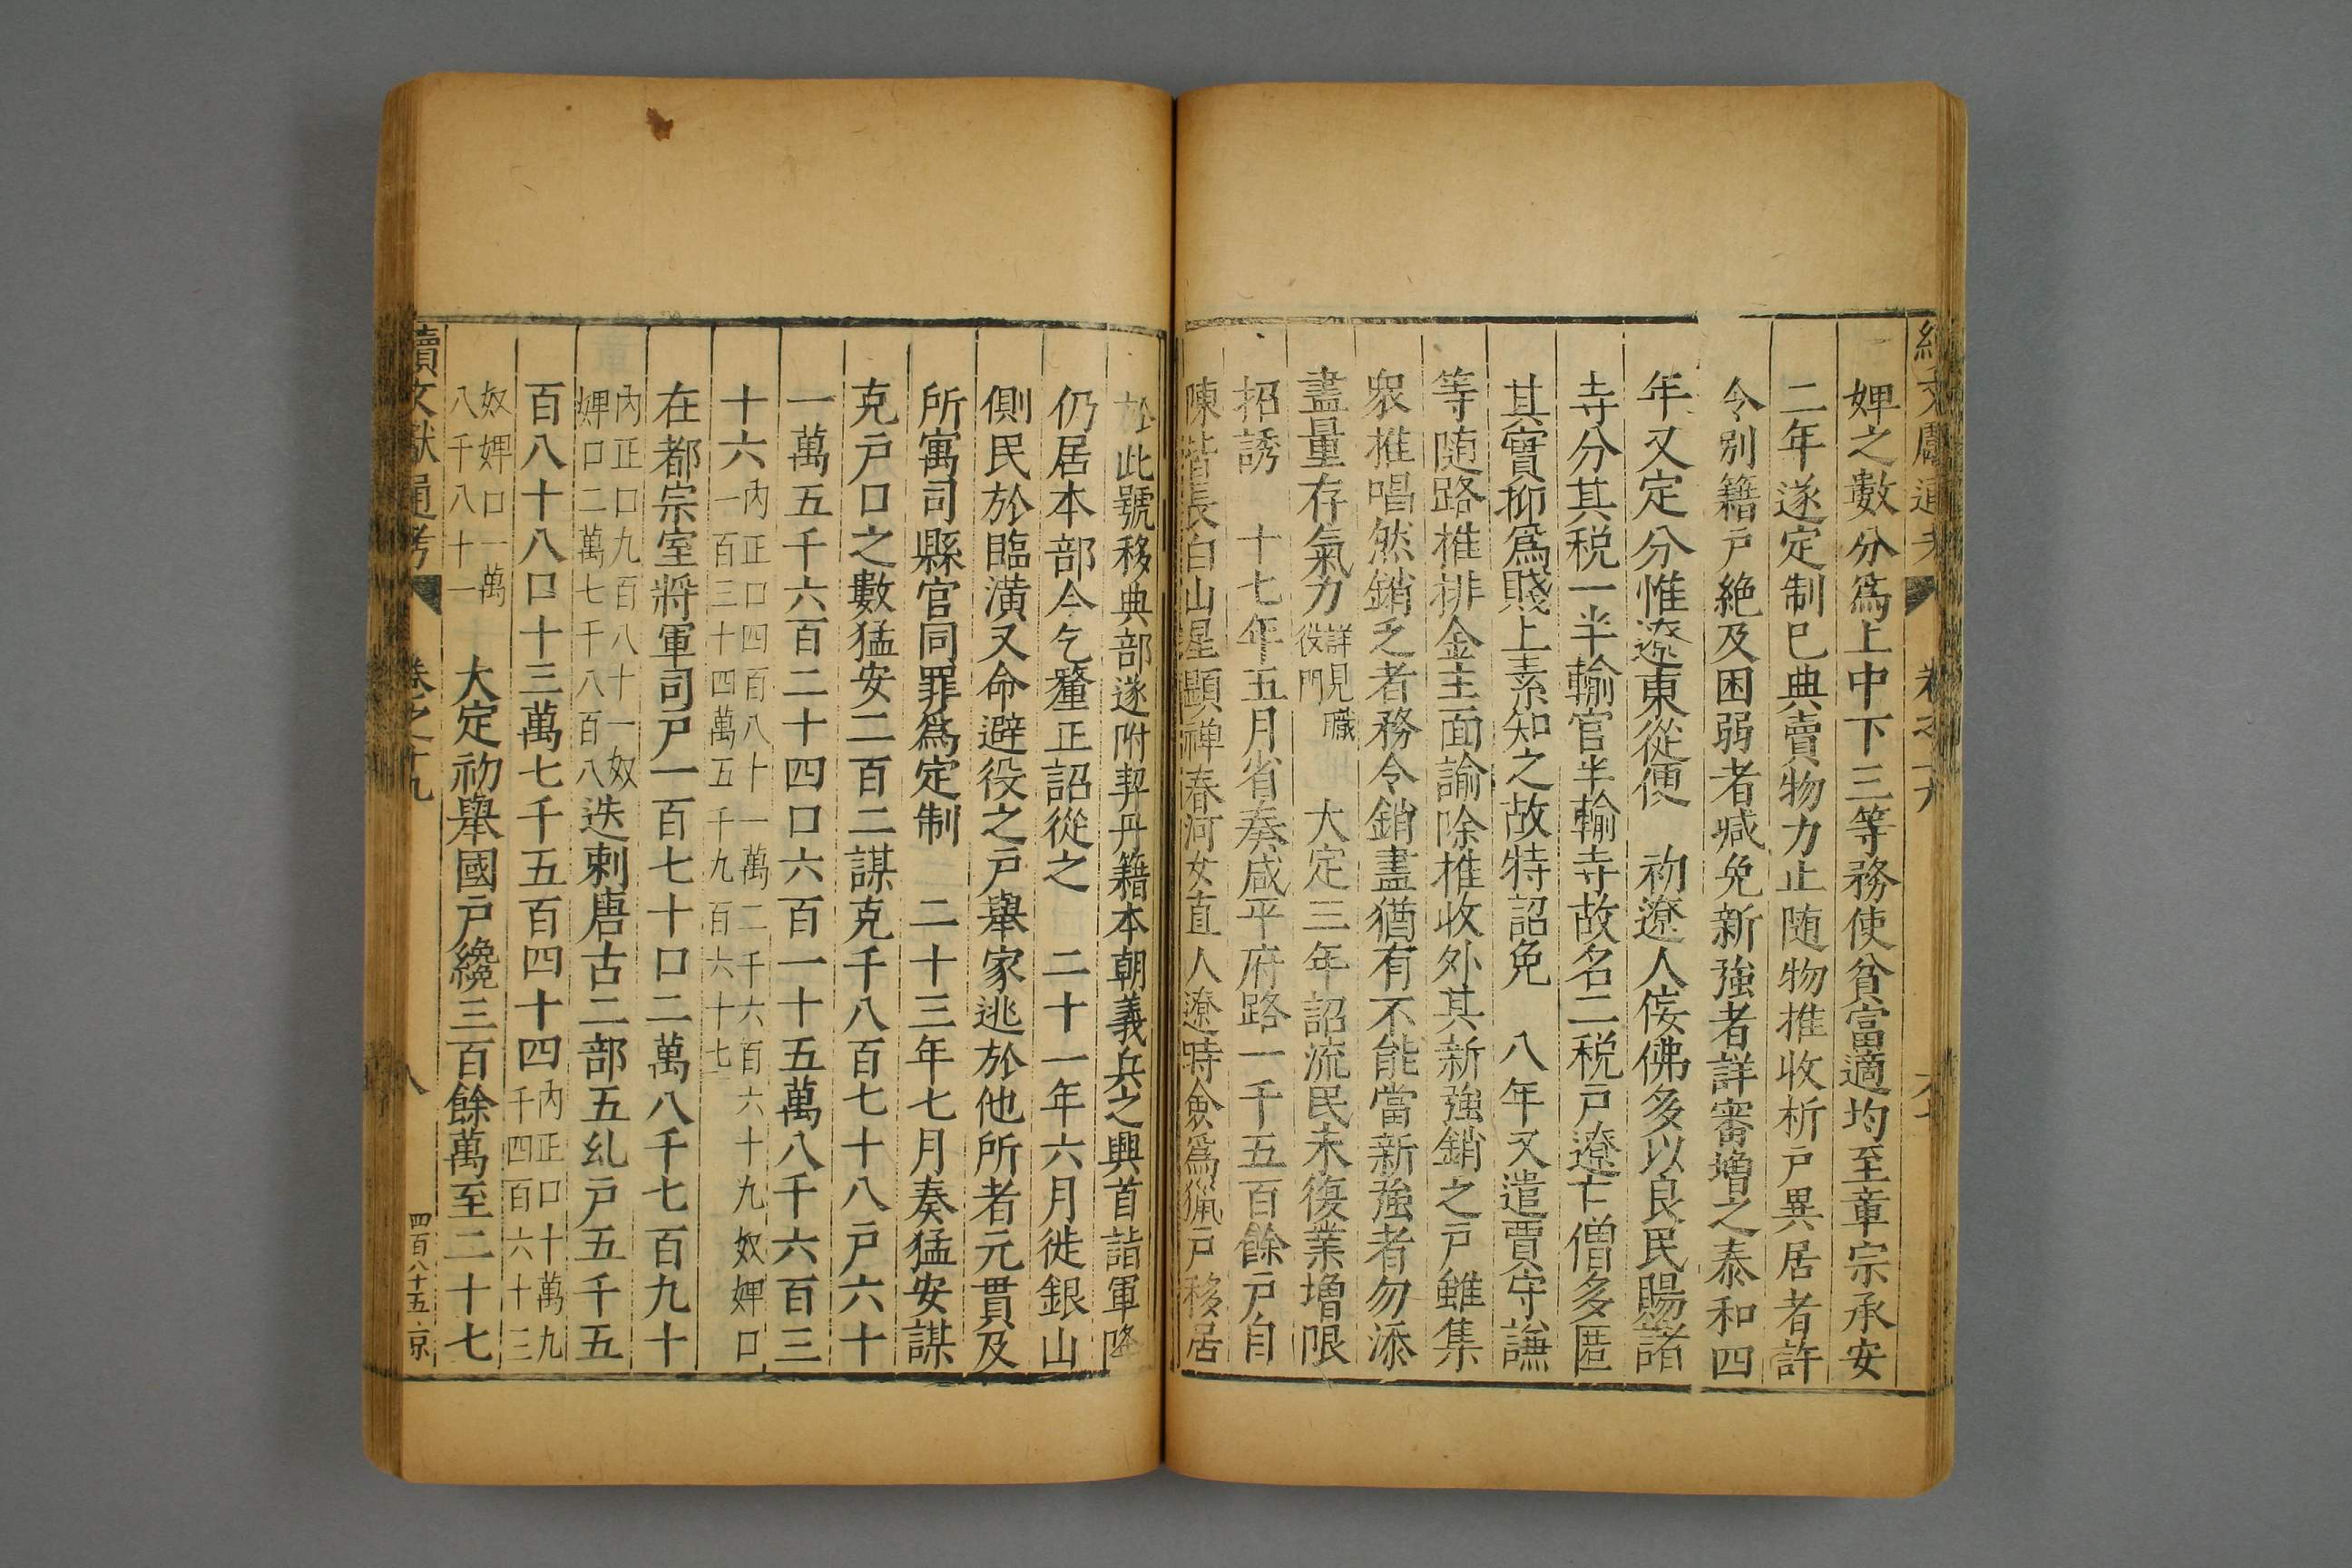 婢之數分爲上中下三等務使貧富適均至章宗承安
二年遂定制已典賣物力止随物推收析戸異居者許
令别籍戸絶及困弱者减免新強者詳審増之泰和四
年又定分惟遼東從便　初遼人佞佛多以良民賜諸
寺分其税一半輸官半輸寺故名二税戸遼亡僧多匿
其實抑爲賤上素知之故特詔免　八年又遣賈守謙
等随路推排金主面諭除推收外其新強銷之戸雖集
衆推唱然銷乏者務令銷盡猶有不能當新強者勿添
盡量存氣力詳見職役門　大定三年詔流民未復業増限
招誘　十七年五月省奏咸平府路一千五百餘戸自
陳皆長白山星顯禪春河女直人遼時僉爲獵戸移居
於此號移典部遂附契丹籍本朝義兵之興首詣軍降
仍居本部今乞釐正詔從之　二十一年六月徙銀山
側民於臨潢又命避役之戸舉家逃於他所者元貫及
所寓司縣官同罪爲定制　二十三年七月奏猛安謀
克戸口之數猛安二百二謀克千八百七十八戸六十
一萬五千六百二十四口六百一十五萬八千六百三
十六内正口四百八十一萬二千六百六十九奴婢口一百三十四萬五千九百六十七
在都宗室將軍司戸一百七十口二萬八千七百九十
内正口九百八十一奴婢口二萬七千八百八迭剌唐古二部五乣戸五千五
百八十八口十三萬七千五百四十四内正口十萬九千四百六十三
奴婢口一萬八千八十一　大定初舉國戸纔三百餘萬至二十七
續文獻通考　卷之十九　八　四百八十五　京